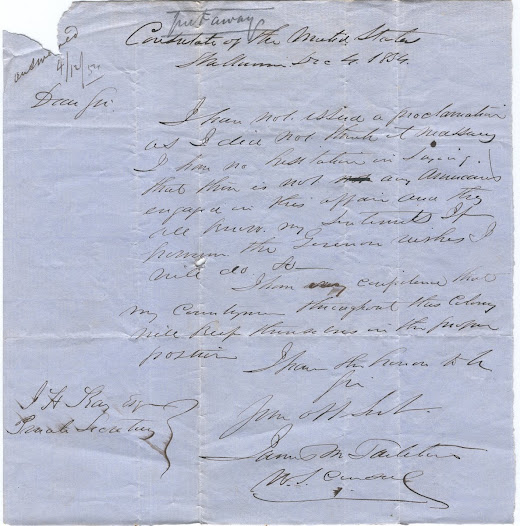 Put away
answered
4/12/54
Consulate of the United States
Melbourne Dec 4. 1854.
Dear Sir
I have not issued a proclamation
as I did not think it necessary
I have no hesitation in saying
that there is not any Americans
engaged in this affair and they
all know my sentiments If
however the Governor wishes I
will do so
I have every confidence that
my Countrymen throughout this Colony
will keep themselves in the proper
position
I have the honor to be
Sir
Your Obt Sevt.
James M Tarleton
U.S. Consul
J H Kay Esq
Private Secretary